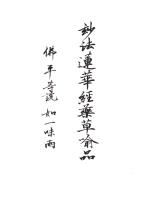 妙法蓮華經藥草喻品
佛平等說 如一味雨